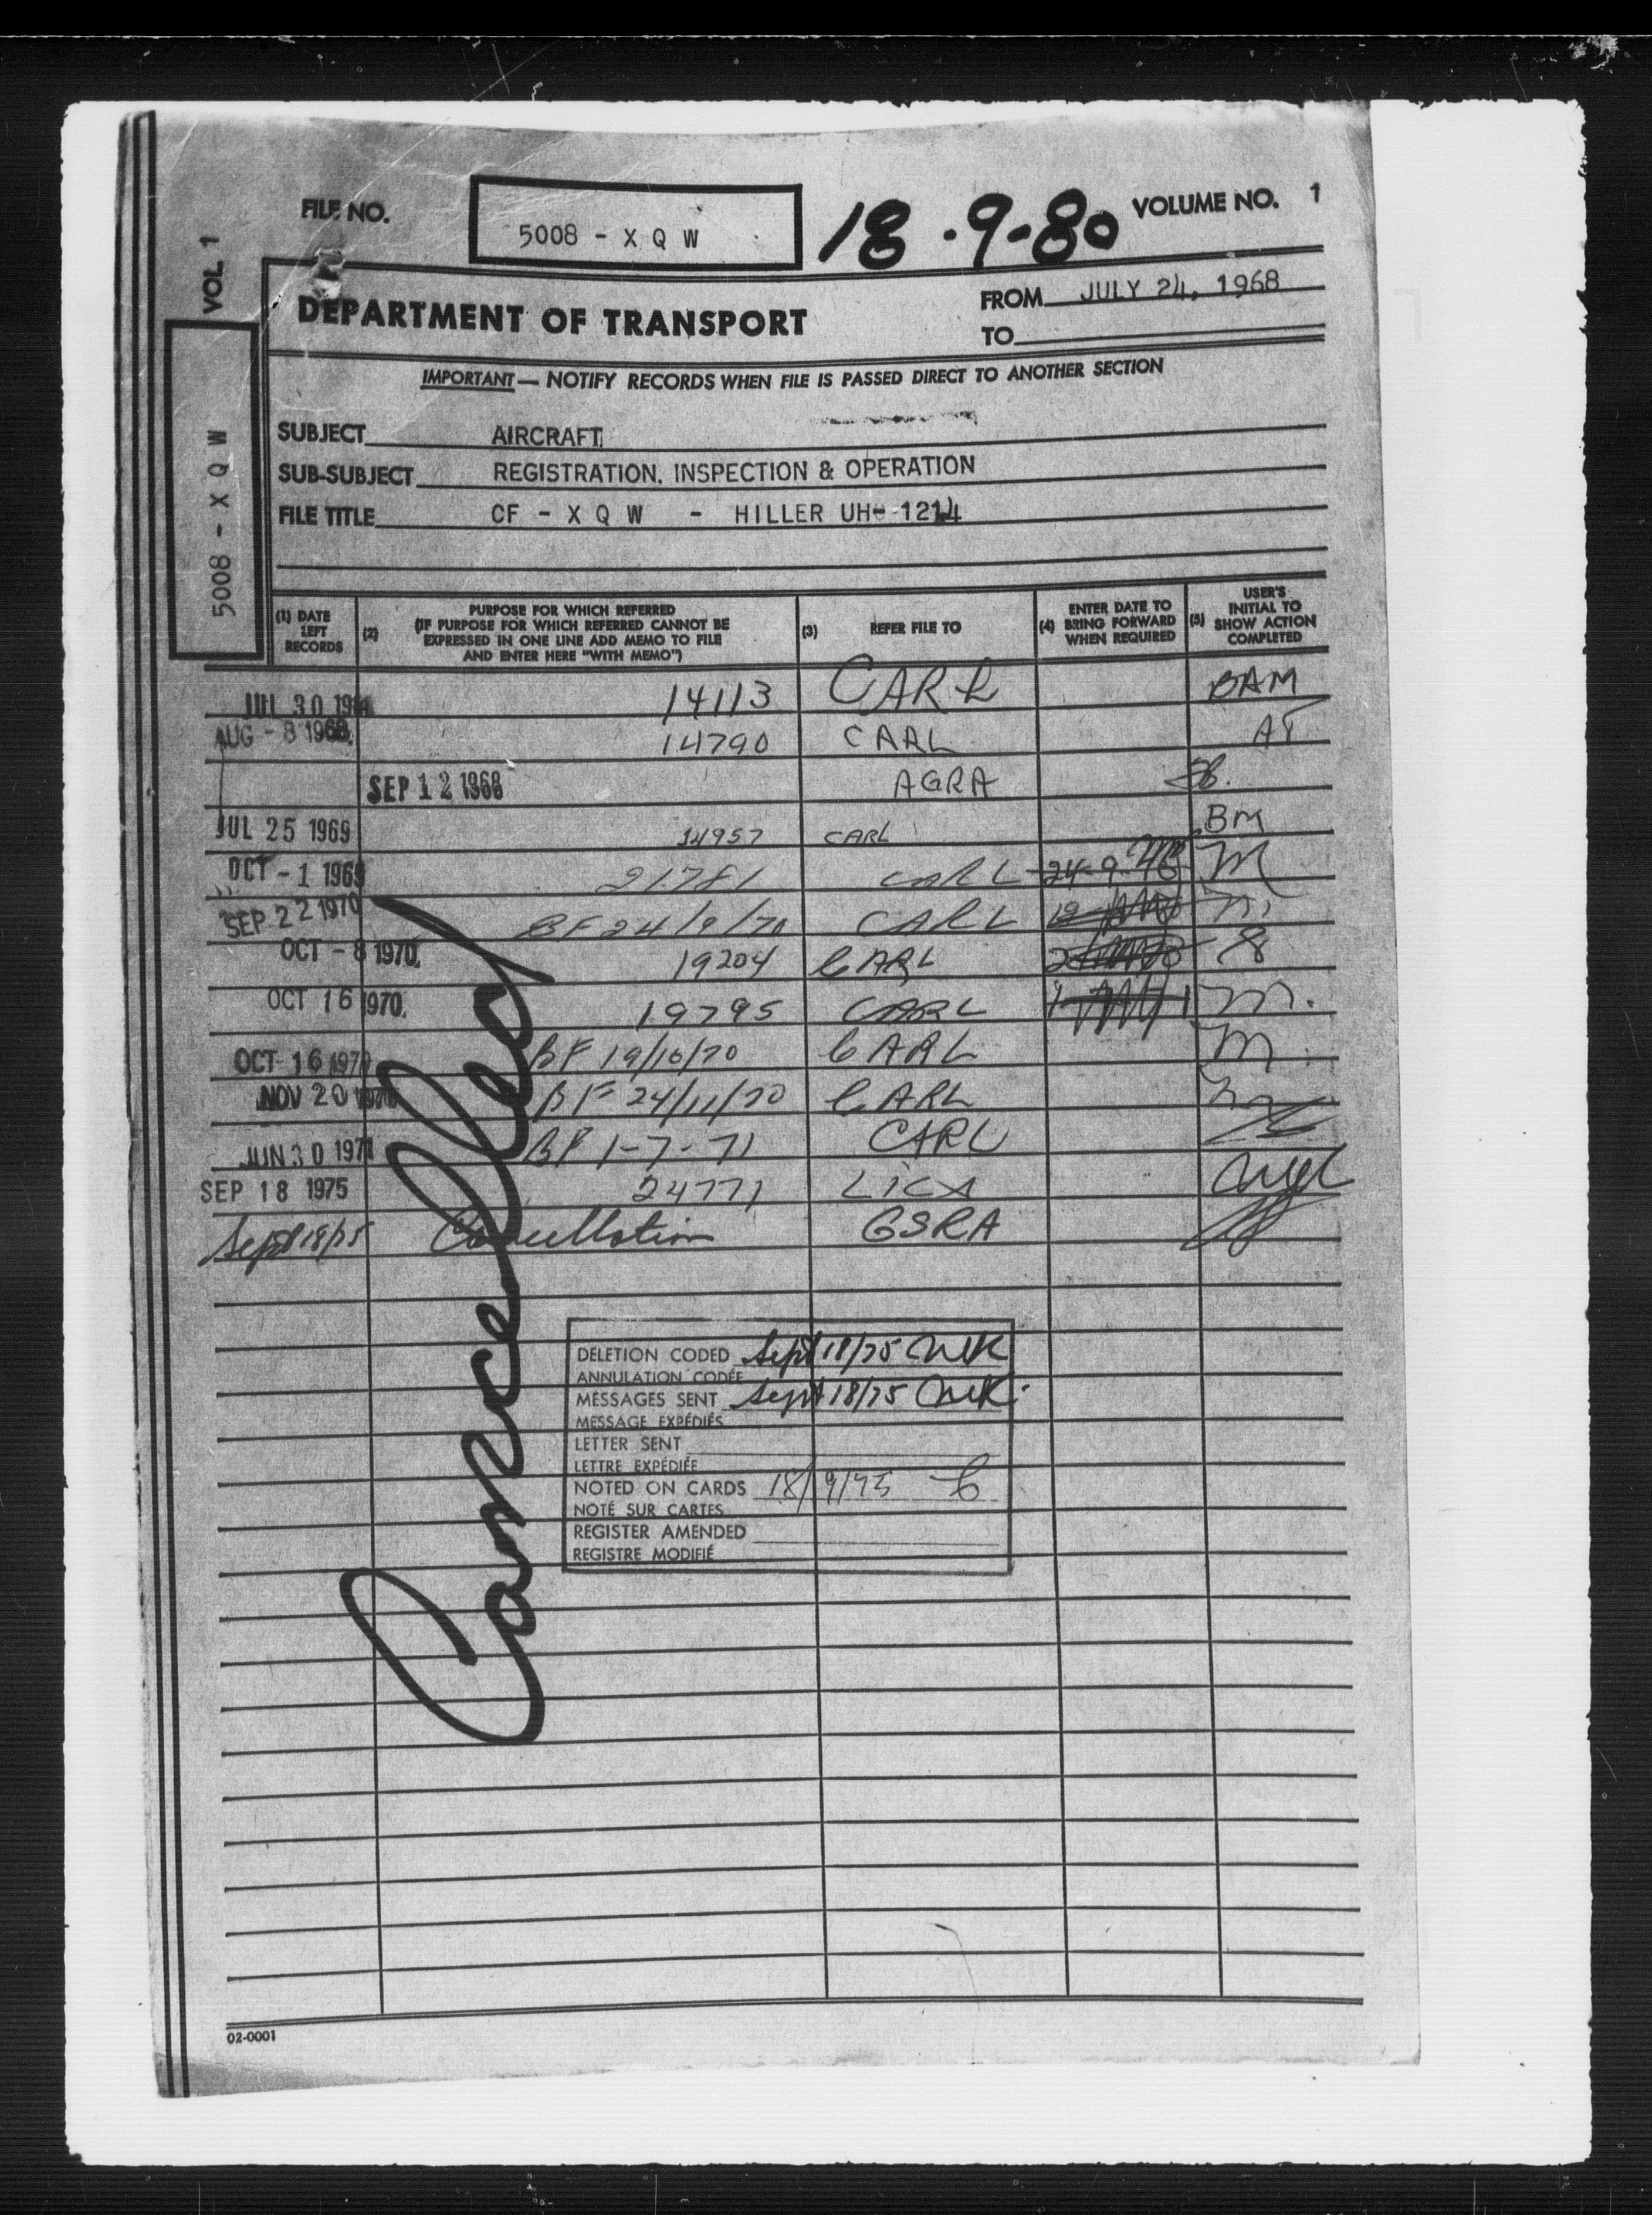 FILE NO.
5008 - X Q W
18.9-80
VOLUME NO. 1
VOL 1
5008 - X Q W
DEPARTMENT OF TRANSPORT
FROM JULY 24, 1968
TO
IMPORTANT — NOTIFY RECORDS WHEN FILE IS PASSED DIRECT TO ANOTHER SECTION
SUBJECT AIRCRAFT
SUB-SUBJECT REGISTRATION. INSPECTION & OPERATION
FILE TITLE CF - X Q W - HILLER UH-12L4
(1) DATE LEFT RECORDS
(2) PURPOSE FOR WHICH REFERRED
(IF PURPOSE FOR WHICH REFERRED CANNOT BE
EXPRESSED IN ONE LINE ADD MEMO TO FILE
AND ENTER HERE "WITH MEMO")
(3) REFER FILE TO
(4) ENTER DATE TO BRING FORWARD WHEN REQUIRED
(5) USER'S INITIAL TO SHOW ACTION COMPLETED
JUL 30 14113 CARL BAM
AUG - 8 1968. 14790 CARL AT
SEP 12 1968 AGRA
JUL 25 1969 14957 CARL BM
OCT - 1 1969 21781 CARL 24-9 M
SEP 22 1970 BF 24/9/70 CARL m
OCT - 8 1970. 19204 CARL
OCT 16 1970. 19795 CARL m.
OCT 16 1970 BF 19/10/70 CARL m
NOV 20 1970 BF 24/11/70 CARL
JUN 30 1971 BF 1-7-71 CARL
SEP 18 1975 24771 LICA
Sept 18/75 Cancellation GSRA
Cancelled
DELETION CODED Sept 18/75
ANNULATION CODÉE
MESSAGES SENT Sept 18/75
MESSAGE EXPÉDIÉS
LETTER SENT
LETTRE EXPÉDIÉE
NOTED ON CARDS 18/9/75
NOTÉ SUR CARTES
REGISTER AMENDED
REGISTRE MODIFIÉ
02-0001